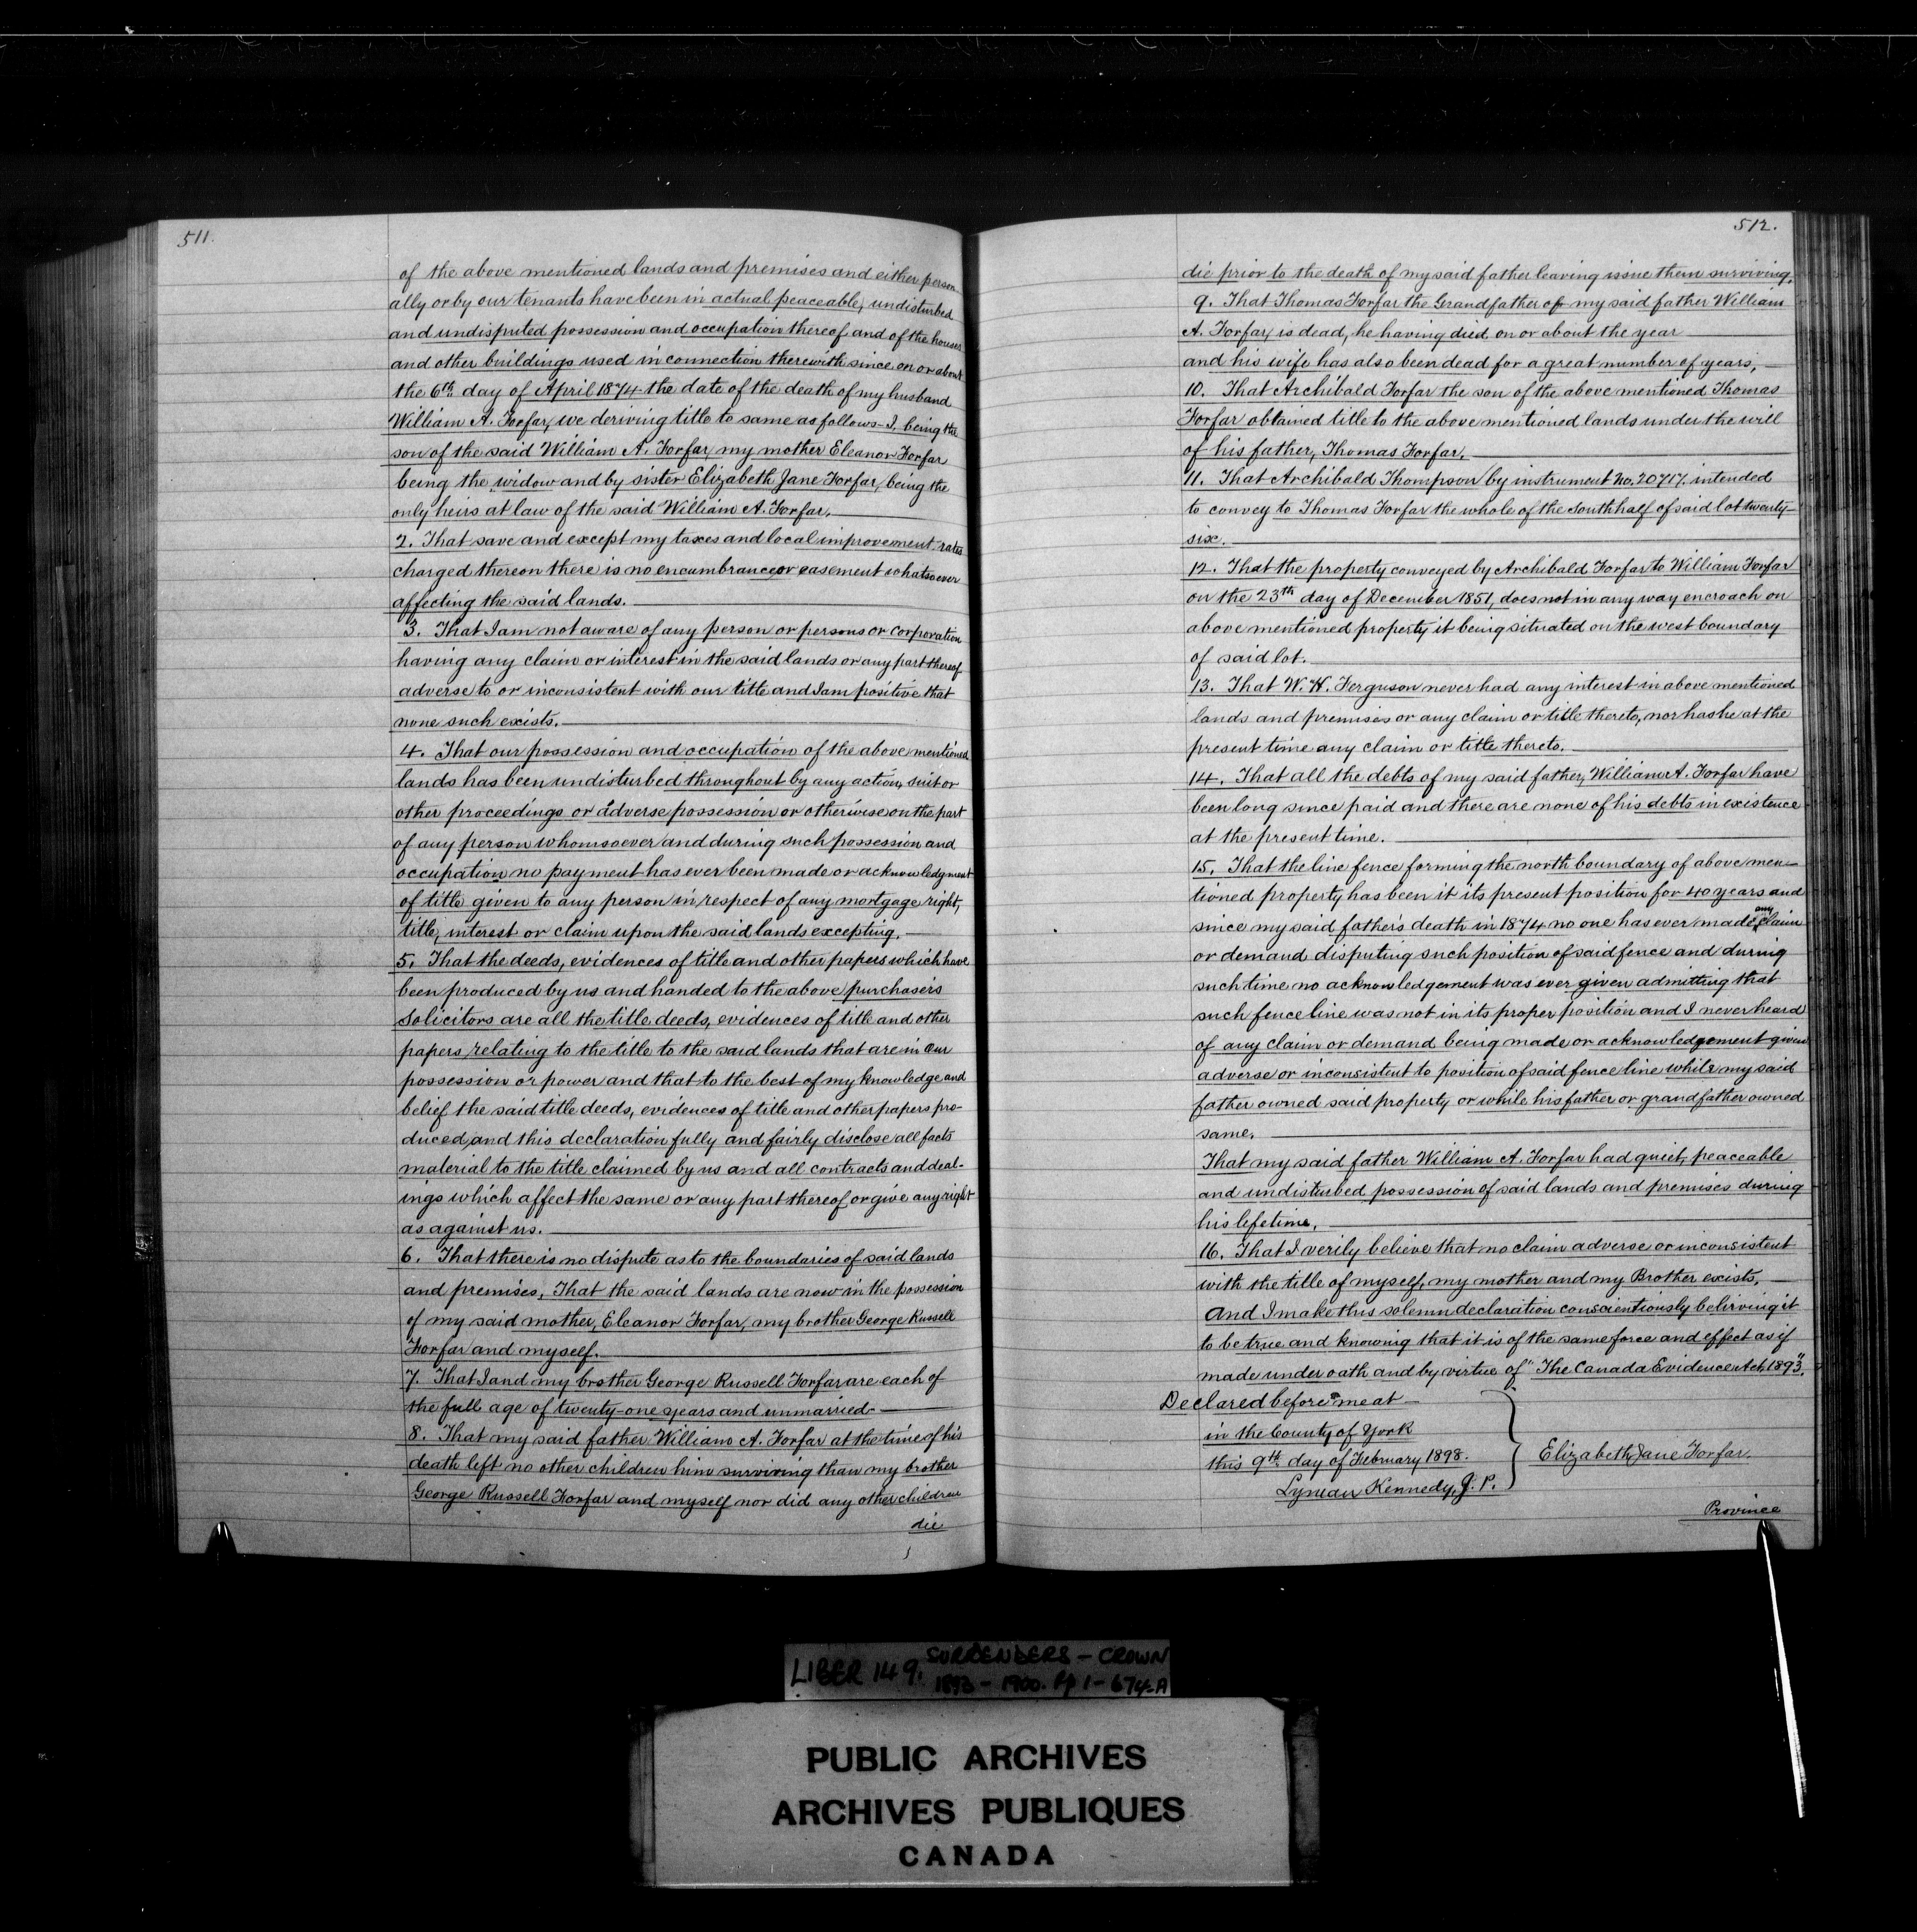 511.
of the above mentioned lands and premises and either person
ally or by our tenants have been in actual peaceable, undisturbed
and undisputed possession and occupation thereof and of the houses
and other buildings used in connection therewith since on or about
the 6th day of April 1874 the date of the death of my husband
William A. Forfar, we deriving title to same as follows - I, being the
son of the said William A. Forfar, my mother Eleanor Forfar
being the widow and by sister Elizabeth Jane Forfar, being the
only heirs at law of the said William A. Forfar.
2. That save and except my taxes and local improvement rates
charged thereon there is no encumbrance or easement whatsoever
affecting the said lands.
3. That I am not aware of any person or persons or corporation
having any claim or interest in the said lands or any part thereof
adverse to or inconsistent with our title and I am positive that
none such exists.
4. That our possession and occupation of the above mentioned
lands has been undisturbed throughout by any action, suit or
other proceedings or adverse possession or otherwise on the part
of any person whomsoever and during such possession and
occupation no payment has ever been made or acknowledgment
of title given to any person in respect of any mortgage right,
title, interest or claim upon the said lands excepting.
5. That the deeds, evidences of title and other papers which have
been produced by us and handed to the above purchasers
Solicitors are all the title deeds, evidences of title and other
papers relating to the title to the said lands that are in our
possession or power and that to the best of my knowledge and
belief the said title deeds, evidences of title and other papers pro-
duced, and this declaration fully and fairly disclose all facts
material to the title claimed by us and all contracts and deal-
ings which affect the same or any part thereof or give any right
as against us.
6. That there is no dispute as to the boundaries of said lands
and premises, That the said lands are now in the possession
of my said mother, Eleanor Forfar, my brother George Russell
Forfar and myself.
7. That I and my brother George Russell Forfar are each of
the full age of twenty-one years and unmarried.
8. That my said father William A. Forfar at the time of his
death left no other children him surviving than my brother
George Russell Forfar and myself nor did any other children
die
512.
die prior to the death of my said father leaving issue them surviving.
9. That Thomas Forfar the Grandfather of my said father William
A. Forfar, is dead, he having died on or about the year
and his wife has also been dead for a great number of years,
10. That Archibald Forfar the son of the above mentioned Thomas
Forfar obtained title to the above mentioned lands under the will
of his father, Thomas Forfar.
11. That Archibald Thompson by instrument No. 20717. intended
to convey to Thomas Forfar the whole of the South half of said lot twenty-
six.
12. That the property conveyed by Archibald Forfar to William Forfar
on the 23th day of December 1851, does not in any way encroach on
above mentioned property it being situated on the west boundary
of said lot.
13. That W. H. Ferguson never had any interest in above mentioned
lands and premises or any claim or title thereto, nor has he at the
present time any claim or title thereto.
14. That all the debts of my said father, William A. Forfar have
been long since paid and there are none of his debts in existence
at the present time.
15. That the line fence forming the north boundary of above men-
tioned property has been it its present position for 40 years and
since my said father's death in 1874 no one has ever made any claim
or demand disputing such position of said fence and during
such time no acknowledgement was ever given admitting that
such fence line was not in its proper position and I never heard
of any claim or demand being made or acknowledgement given
adverse or inconsistent to position of said fence line while my said
father owned said property or while his father or grandfather owned
same.
That my said father William A. Forfar had quiet, peaceable
and undisturbed possession of said lands and premises during
his lifetime.
16. That I verily believe that no claim adverse or inconsistent
with the title of myself, my mother and my Brother exists.
And I make this solemn declaration conscientiously believing it
to be true and knowing that it is of the same force and effect as if
made under oath and by virtue of "The Canada Evidence Act, 1893".
Declared before me at
in the County of York
this 9th day of February 1898.
Lyman Kennedy, J. P.
Elizabeth Jane Forfar.
Province
LIBER 149. SURRENDERS - CROWN
1893 - 1900. Pp 1 - 674-A
PUBLIC ARCHIVES
ARCHIVES PUBLIQUES
CANADA